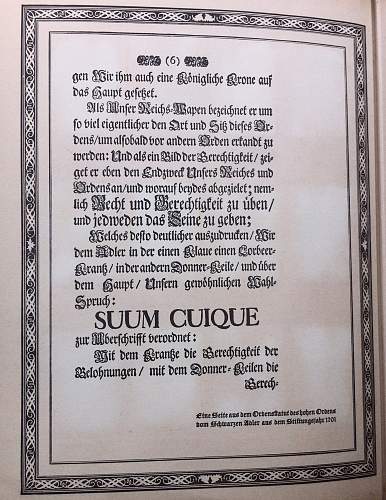 (6)
gen Wir ihm auch eine Königliche Krone auf
das Haupt gesetzet.
Als Unser Reichs-Wapen bezeichnet er um
so viel eigentlicher den Ort und Sitz dieses Or-
dens/um alsobald vor andern Orden erkandt zu
werden: Und als ein Bild der Gerechtigkeit/ zei-
get er eben den Endzweck Unsers Reiches und
Ordens an/und worauf beydes abgezielet; nem-
lich Recht und Gerechtigkeit zu üben/
und jedweden das Seine zu geben;
Welches desto deutlicher auszudrucken/ Wir
dem Adler in der einen Klaue einen Lorbeer-
Krantz/ in der andern Donner-Keile/ und über
dem Haupt/ Unsern gewöhnlichen Wahl-
Spruch:
SUUM CUIQUE
zur Uberschrifft verordnet:
Mit dem Krantze die Gerechtigkeit der
Belohnungen/ mit dem Donner-Keilen die
Gerech-
Eine Seite aus dem Ordensstatut des hohen Ordens
vom Schwarzen Adler aus dem Stiftungsjahr 1701